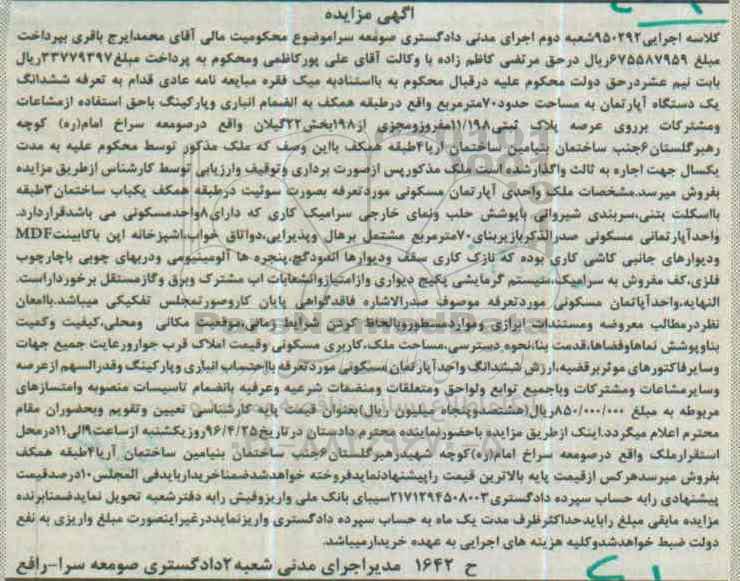 آگهی مزایده
کلاسه اجرایی۹۵۰۲۹۲شعبه دوم اجرای مدنی دادگستری صومعه سراموضوع محکومیت مالی آقای محمدایرج باقری بپرداخت
مبلغ ۶۷۵۵۸۷۹۵۹ریال درحق مرتضی کاظم زاده با وکالت آقای علی پورکاظمی ومحکوم به پرداخت مبلغ۳۳۷۷۹۳۹۷ریال
بابت نیم عشردرحق دولت محکوم علیه درقبال محکوم به بااستنادبه میک فقره مبایعه نامه عادی قدام به تعرفه ششدانگ
یک دستگاه آپارتمان به مساحت حدود۷۰مترمربع واقع درطبقه همکف به انضمام انباری وپارکینگ باحق استفاده ازمشاعات
ومشترکات برروی عرصه پلاک ثبتی۱۱/۱۹۸مفروزومجزی از۱۹۸بخش۲۲گیلان واقع درصومعه سراخ امام(ره) کوچه
رهبرگلستان۶جنب ساختمان بنیامین ساختمان آریا۴طبقه همکف بااین وصف که ملک مذکور توسط محکوم علیه به مدت
یکسال جهت اجاره به ثالث واگذارشده است ملک مذکورپس ازصورت برداری وتوقیف وارزیابی توسط کارشناس ازطریق مزایده
بفروش میرسد.مشخصات ملک واحدی آپارتمان مسکونی موردتعرفه بصورت سوئیت درطبقه همکف یکباب ساختمان۳طبقه
بااسکلت بتنی،سربندی شیروانی باپوشش حلب ونمای خارجی سرامیک کاری که دارای۸واحدمسکونی می باشدقراردارد.
واحدآپارتمانی مسکونی صدرالذکربازیربنای۷۰مترمربع مشتمل برهال وپذیرایی،دواتاق خواب،اشپزخانه اپن باکابینتMDF
ودیوارهای جانبی کاشی کاری بوده که نازک کاری سقف ودیوارها اندودگچ،پنجره ها آلومینیومی ودربهای چوبی باچارچوب
فلزی،کف مفروش به سرامیک،سیستم گرمایشی پکیج دیواری وازامتیازوانشعابات اب مشترک وبرق وگازمستقل برخورداراست.
النهایه،واحدآپاتمان مسکونی موردتعرفه موصوف صدرالاشاره فاقدگواهی پایان کاروصورتمجلس تفکیکی میباشد.باامعان
نظردرمطالب معروضه ومستندات ابرازی ومواردمسطوروبالحاظ کردن شرایط زمانی،موقعیت مکانی ومحلی،کیفیت وکمیت
بناوپوشش نماهاوفضاها،قدمت بنا،نحوه دسترسی،مساحت ملک،کاربری مسکونی وقیمت املاک قرب جواررعایت جمیع جهات
وسایرفاکتورهای موثربرقضیه،ارزش ششدانگ واحدآپارتمان مسکونی موردتعرفه بااحتساب انباری وپارکینگ وقدرالسهم ازعرصه
وسایرمشاعات ومشترکات وباجمیع توابع ولواحق ومتعلقات ومنضمات شرعیه وعرفیه بانضمام تاسیسات منصوبه وامتسازهای
مربوطه به مبلغ ۸۵۰/۰۰۰/۰۰۰ریال(هشتصدوپنجاه میلیون ریال)بعنوان قیمت پایه کارشناسی تعیین وتقویم وبحضوران مقام
محترم اعلام میگردد.اینک ازطریق مزایده باحضورنماینده محترم دادستان درتاریخ۹۶/۴/۲۵روزیکشنبه ازساعت۹الی۱۱درمحل
استقرارملک واقع درصومعه سراخ امام(ره)کوچه شهیدرهبرگلستان۶جنب ساختمان بنیامین ساختمان آریا۴طبقه همکف
بفروش میرسدهرکس ازقیمت پایه بالاترین قیمت راپیشنهادنمایدفروخته خواهدشدضمناخریداربایدفی المجلس۱۰درصدقیمت
پیشنهادی رابه حساب سپرده دادگستری۲۱۷۱۲۹۴۵۰۸۰۰۳سیبای بانک ملی واریزوفیش رابه دفترشعبه تحویل نمایدضمنابرنده
مزایده مابقی مبلغ رابایدحداکثرظرف مدت یک ماه به حساب سپرده دادگستری واریزنمایددرغیراینصورت مبلغ واریزی به نفع
دولت ضبط خواهدشدوکلیه هزینه های اجرایی به عهده خریدارمیباشد.
ح ۱۶۴۲ مدیراجرای مدنی شعبه۲دادگستری صومعه سرا–رافع